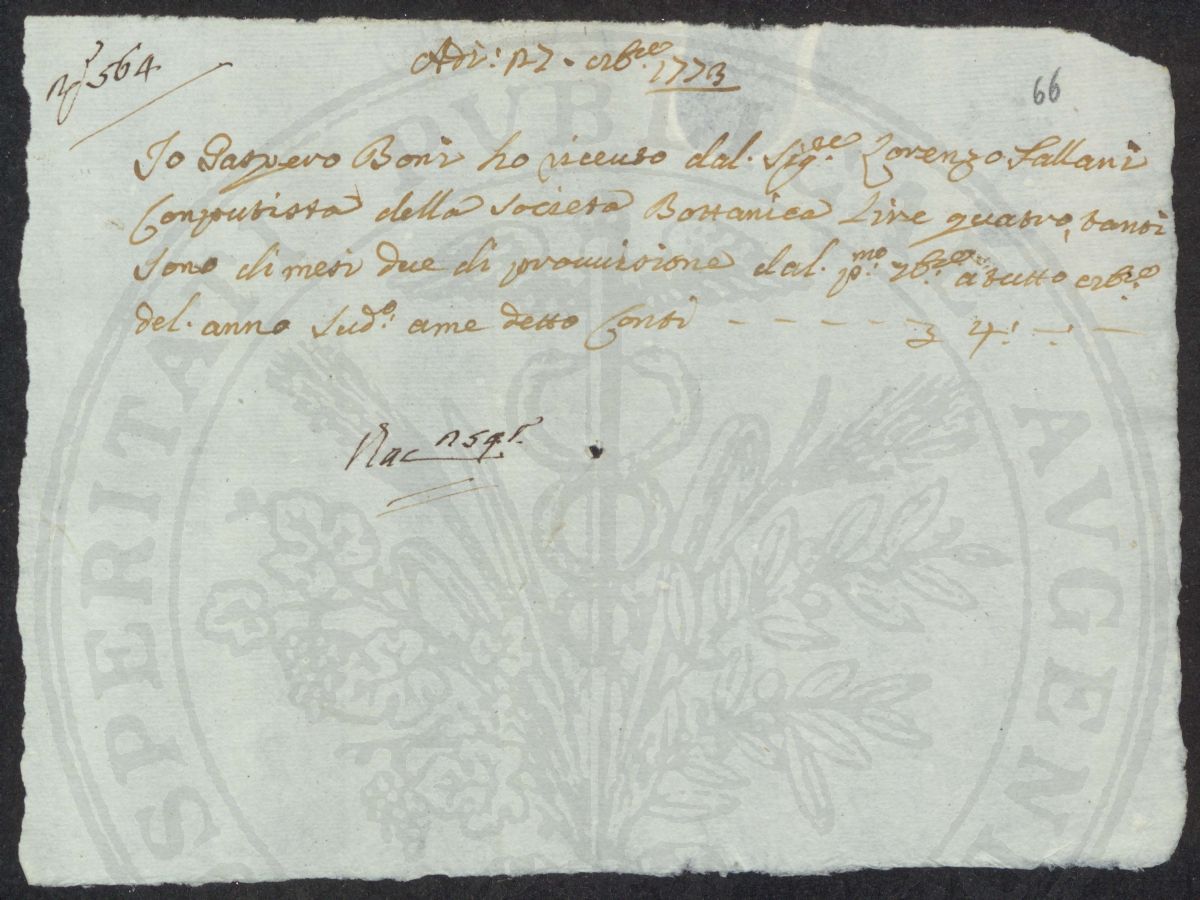 N.º 564
Adi: 27. 8rb.re 1773
66
Io Gaspero Boni ho riceuto dal. Sig.re Lorenzo Fallani
Conputista della Societa Bottanica Lire quatro, tanti
Sono di mesi due di prouuisione dal. p.mo 7b.re a tutto 8rb.re
del. anno Sud.o ame detto Conti - - - - - 4: - : -
PVBL AE
SPERITATI AVGEN